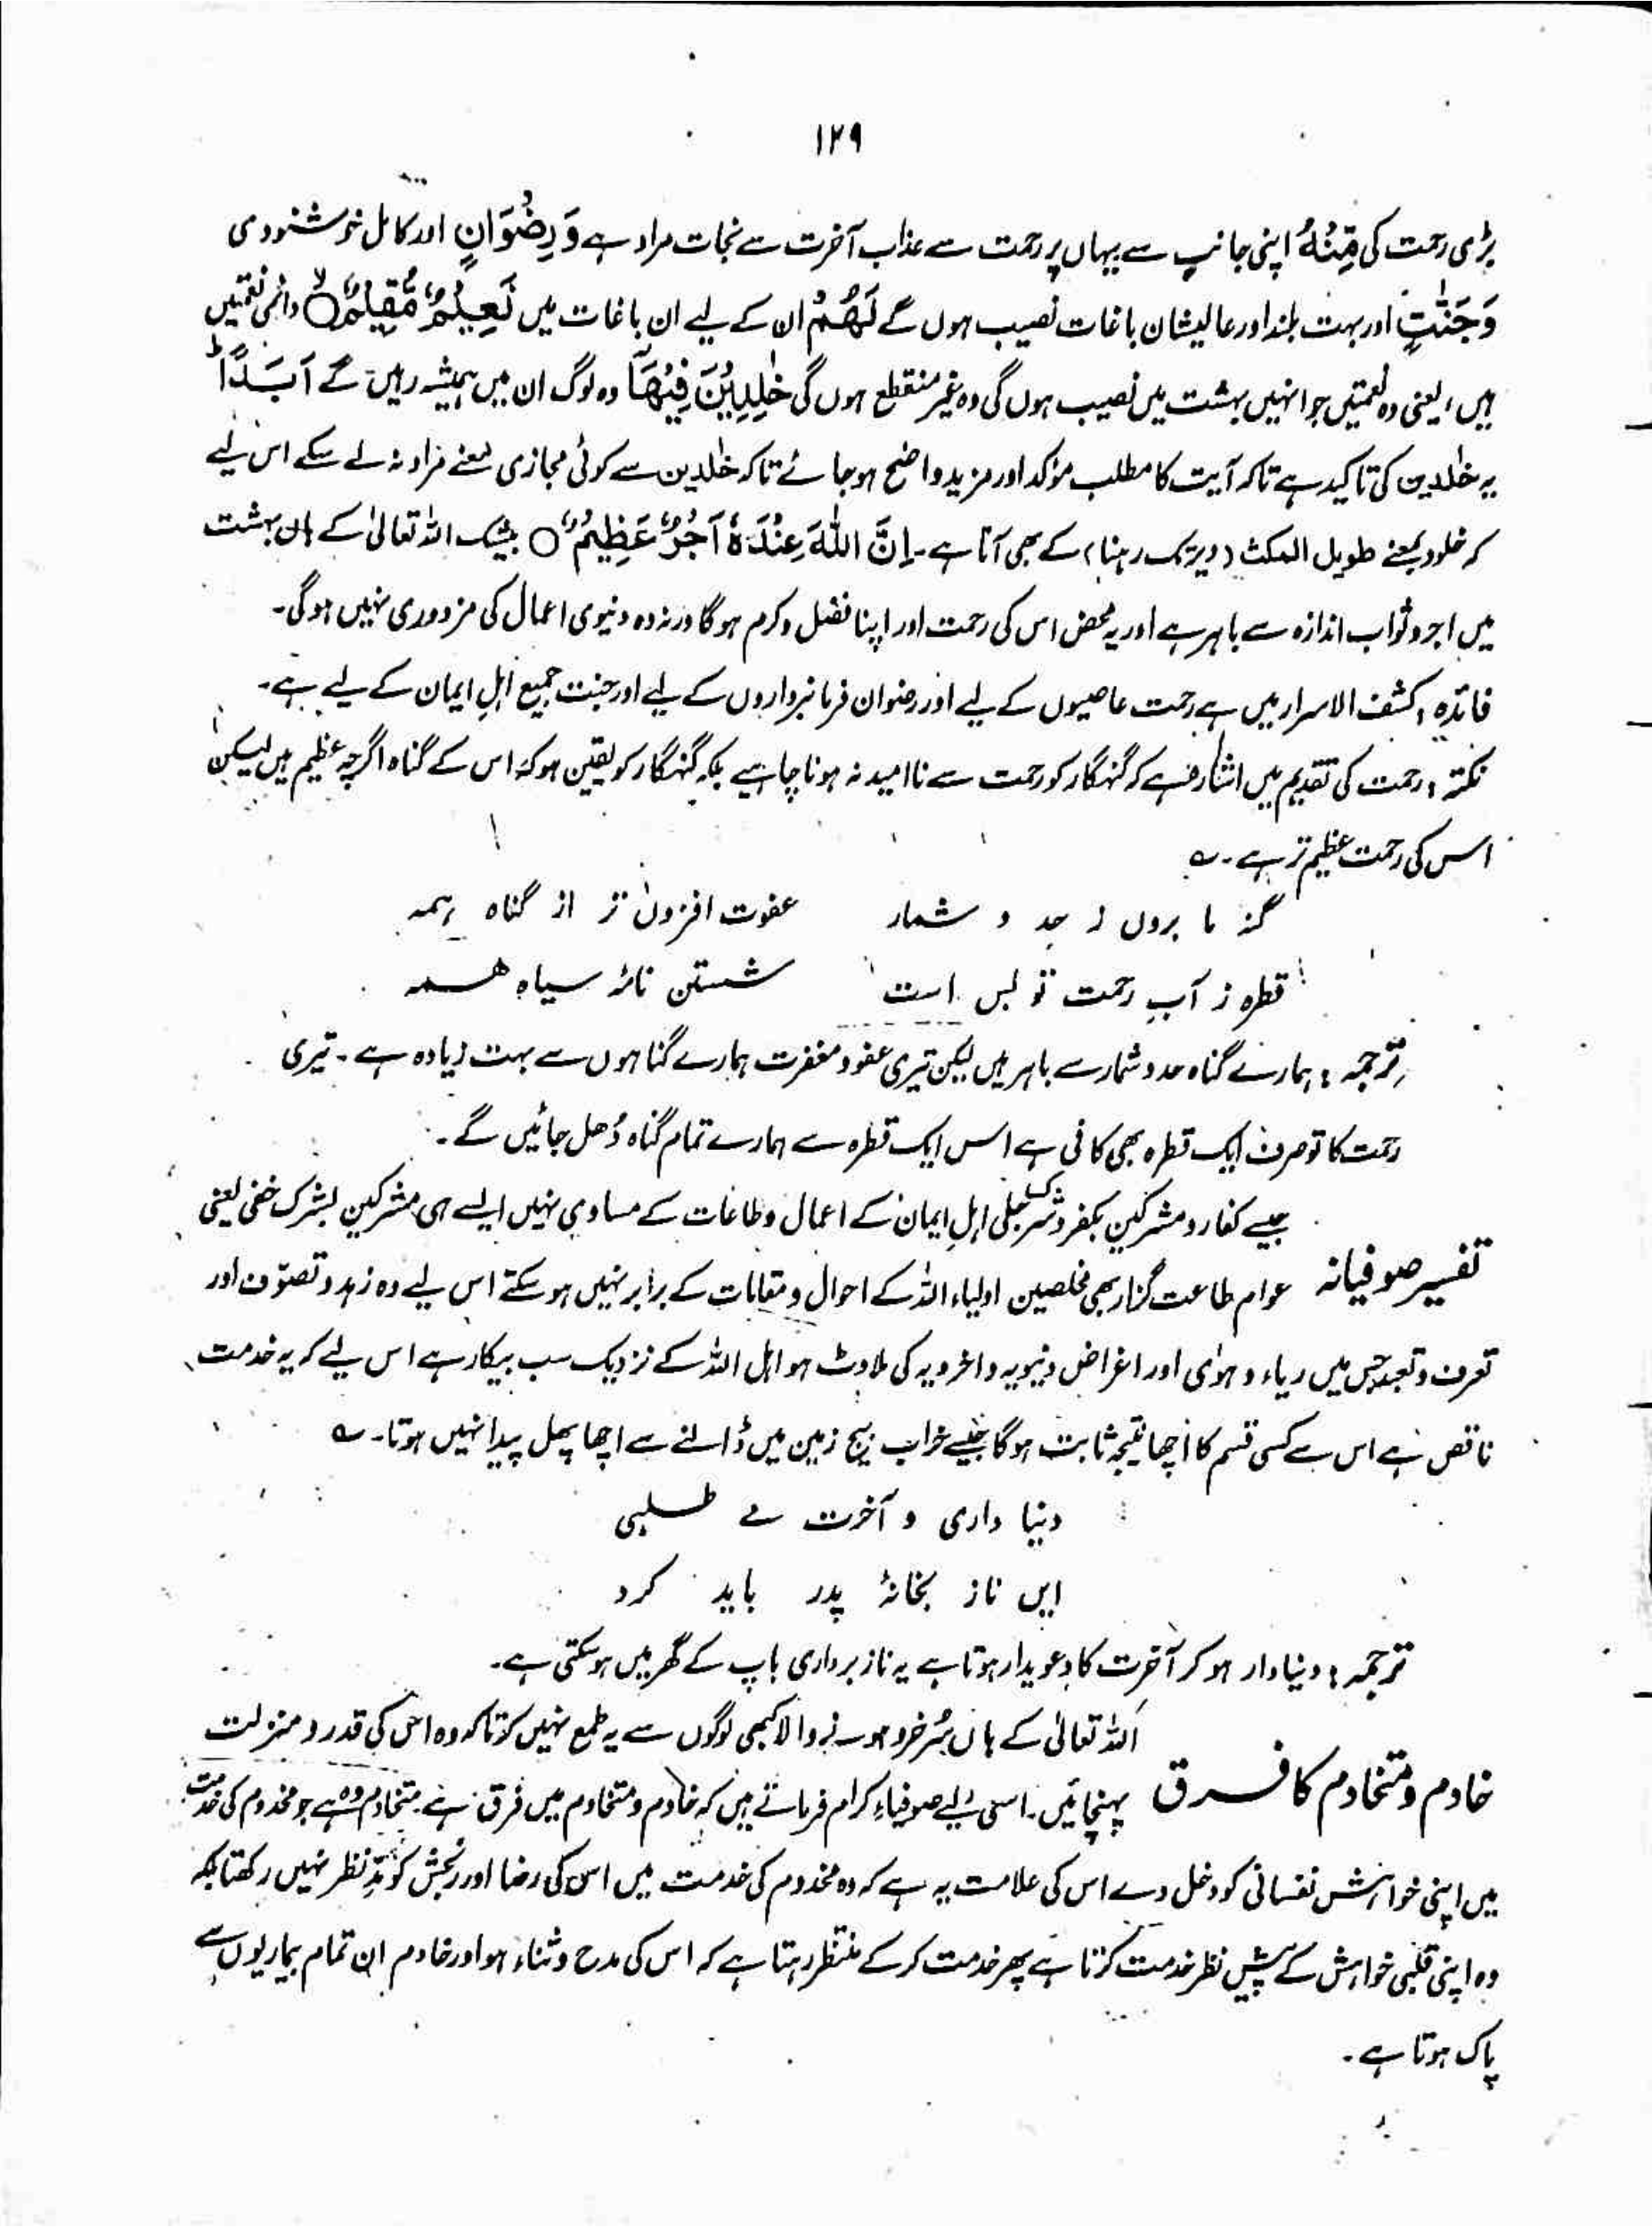 ۱۲۹
بڑی رحمت کی مِّنْهُ اپنی جانب سے یہاں پر رحمت سے عذاب آخرت سے نجات مراد ہے وَرِضْوَانٍ اور کامل خوشنودی
وَجَنّٰتٍ اور بہت بلند اور عالیشان باغات نصیب ہوں گے لَهُمْ ان کے لیے ان باغات میں نَعِیْمٌ مُّقِیْمٌ ○ دائمی نعمتیں
ہیں، یعنی وہ نعمتیں جو انہیں بہشت میں نصیب ہوں گی وہ غیر منقطع ہوں گی خٰلِدِیْنَ فِیْهَآ وہ لوگ ان میں ہمیشہ رہیں گے اَبَدًا ؕ
یہ خٰلدین کی تاکید ہے تاکہ آیت کا مطلب مؤکد اور مزید واضح ہو جائے تاکہ خٰلدین سے کوئی مجازی معنے مراد نہ لے سکے اس لیے
کہ خلود بمعنے طویل المکث (دیر تک رہنا) کے بھی آتا ہے۔ اِنَّ اللّٰهَ عِنْدَهٗ اَجْرٌ عَظِیْمٌ ○ بیشک اللہ تعالیٰ کے ہاں بہشت
میں اجر و ثواب اندازہ سے باہر ہے اور یہ محض اس کی رحمت اور اپنا فضل و کرم ہوگا ورنہ وہ دنیوی اعمال کی مزدوری نہیں ہوگی۔
فائدہ : کشف الاسرار میں ہے رحمت عاصیوں کے لیے اور رضوان فرمانبرداروں کے لیے اور جنت جمیع اہلِ ایمان کے لیے ہے۔
نکتہ : رحمت کی تقدیم میں اشارہ ہے کہ گنہگار کو رحمت سے ناامید نہ ہونا چاہیے بلکہ گنہگار کو یقین ہو کہ اس کے گناہ اگرچہ عظیم ہیں لیکن
اس کی رحمت عظیم تر ہے۔ ؎
گنہ ما بروں ز حد و شمار عفوت افزوں تر از گناہ ہمہ
قطرہ ز آبِ رحمت تو بس است شستن نامۂ سیاہ ہمہ
ترجمہ : ہمارے گناہ حد و شمار سے باہر ہیں لیکن تیری عفو و مغفرت ہمارے گناہوں سے بہت زیادہ ہے۔ تیری
رحمت کا تو صرف ایک قطرہ بھی کافی ہے اس ایک قطرہ سے ہمارے تمام گناہ دُھل جائیں گے۔
جیسے کفار و مشرکین بکفر و شرک جلی اہلِ ایمان کے اعمال و طاعات کے مساوی نہیں ایسے ہی مشرکین بشرک خفی یعنی
تفسیر صوفیانہ عوام طاعت گزار بھی مخلصین اولیاء اللہ کے احوال و مقامات کے برابر نہیں ہو سکتے اس لیے وہ زہد و تصوّف اور
تعرف و تعبد جس میں ریاء و ہوٰی اور اغراض دنیویہ و اخرویہ کی ملاوٹ ہو اہل اللہ کے نزدیک سب بیکار ہے اس لیے کہ یہ خدمت
ناقص ہے اس سے کسی قسم کا اچھا نتیجہ ثابت ہوگا جیسے خراب بیج زمین میں ڈالنے سے اچھا پھل پیدا نہیں ہوتا۔ ؎
دنیا داری و آخرت مے طلبی
ایں ناز بخانۂ پدر باید کرد
ترجمہ : دنیا دار ہو کر آخرت کا دعویدار ہوتا ہے یہ ناز برداری باپ کے گھر میں ہو سکتی ہے۔
اللہ تعالیٰ کے ہاں سُرخرو ہونے والا کبھی لوگوں سے یہ طمع نہیں کرتا کہ وہ اس کی قدر و منزلت
خادم و متخادم کا فرق پہنچائیں۔ اسی لیے صوفیاءِ کرام فرماتے ہیں کہ خادم و متخادم میں فرق ہے۔ متخادم وہ ہے جو مخدوم کی خدمت
میں اپنی خواہش نفسانی کو دخل دے اس کی علامت یہ ہے کہ وہ مخدوم کی خدمت میں اس کی رضا اور رنجش کو مدِّنظر نہیں رکھتا بلکہ
وہ اپنی قلبی خواہش کے پیش نظر خدمت کرتا ہے پھر خدمت کر کے منتظر رہتا ہے کہ اس کی مدح و ثناء ہو اور خادم ان تمام بیماریوں سے
پاک ہوتا ہے۔